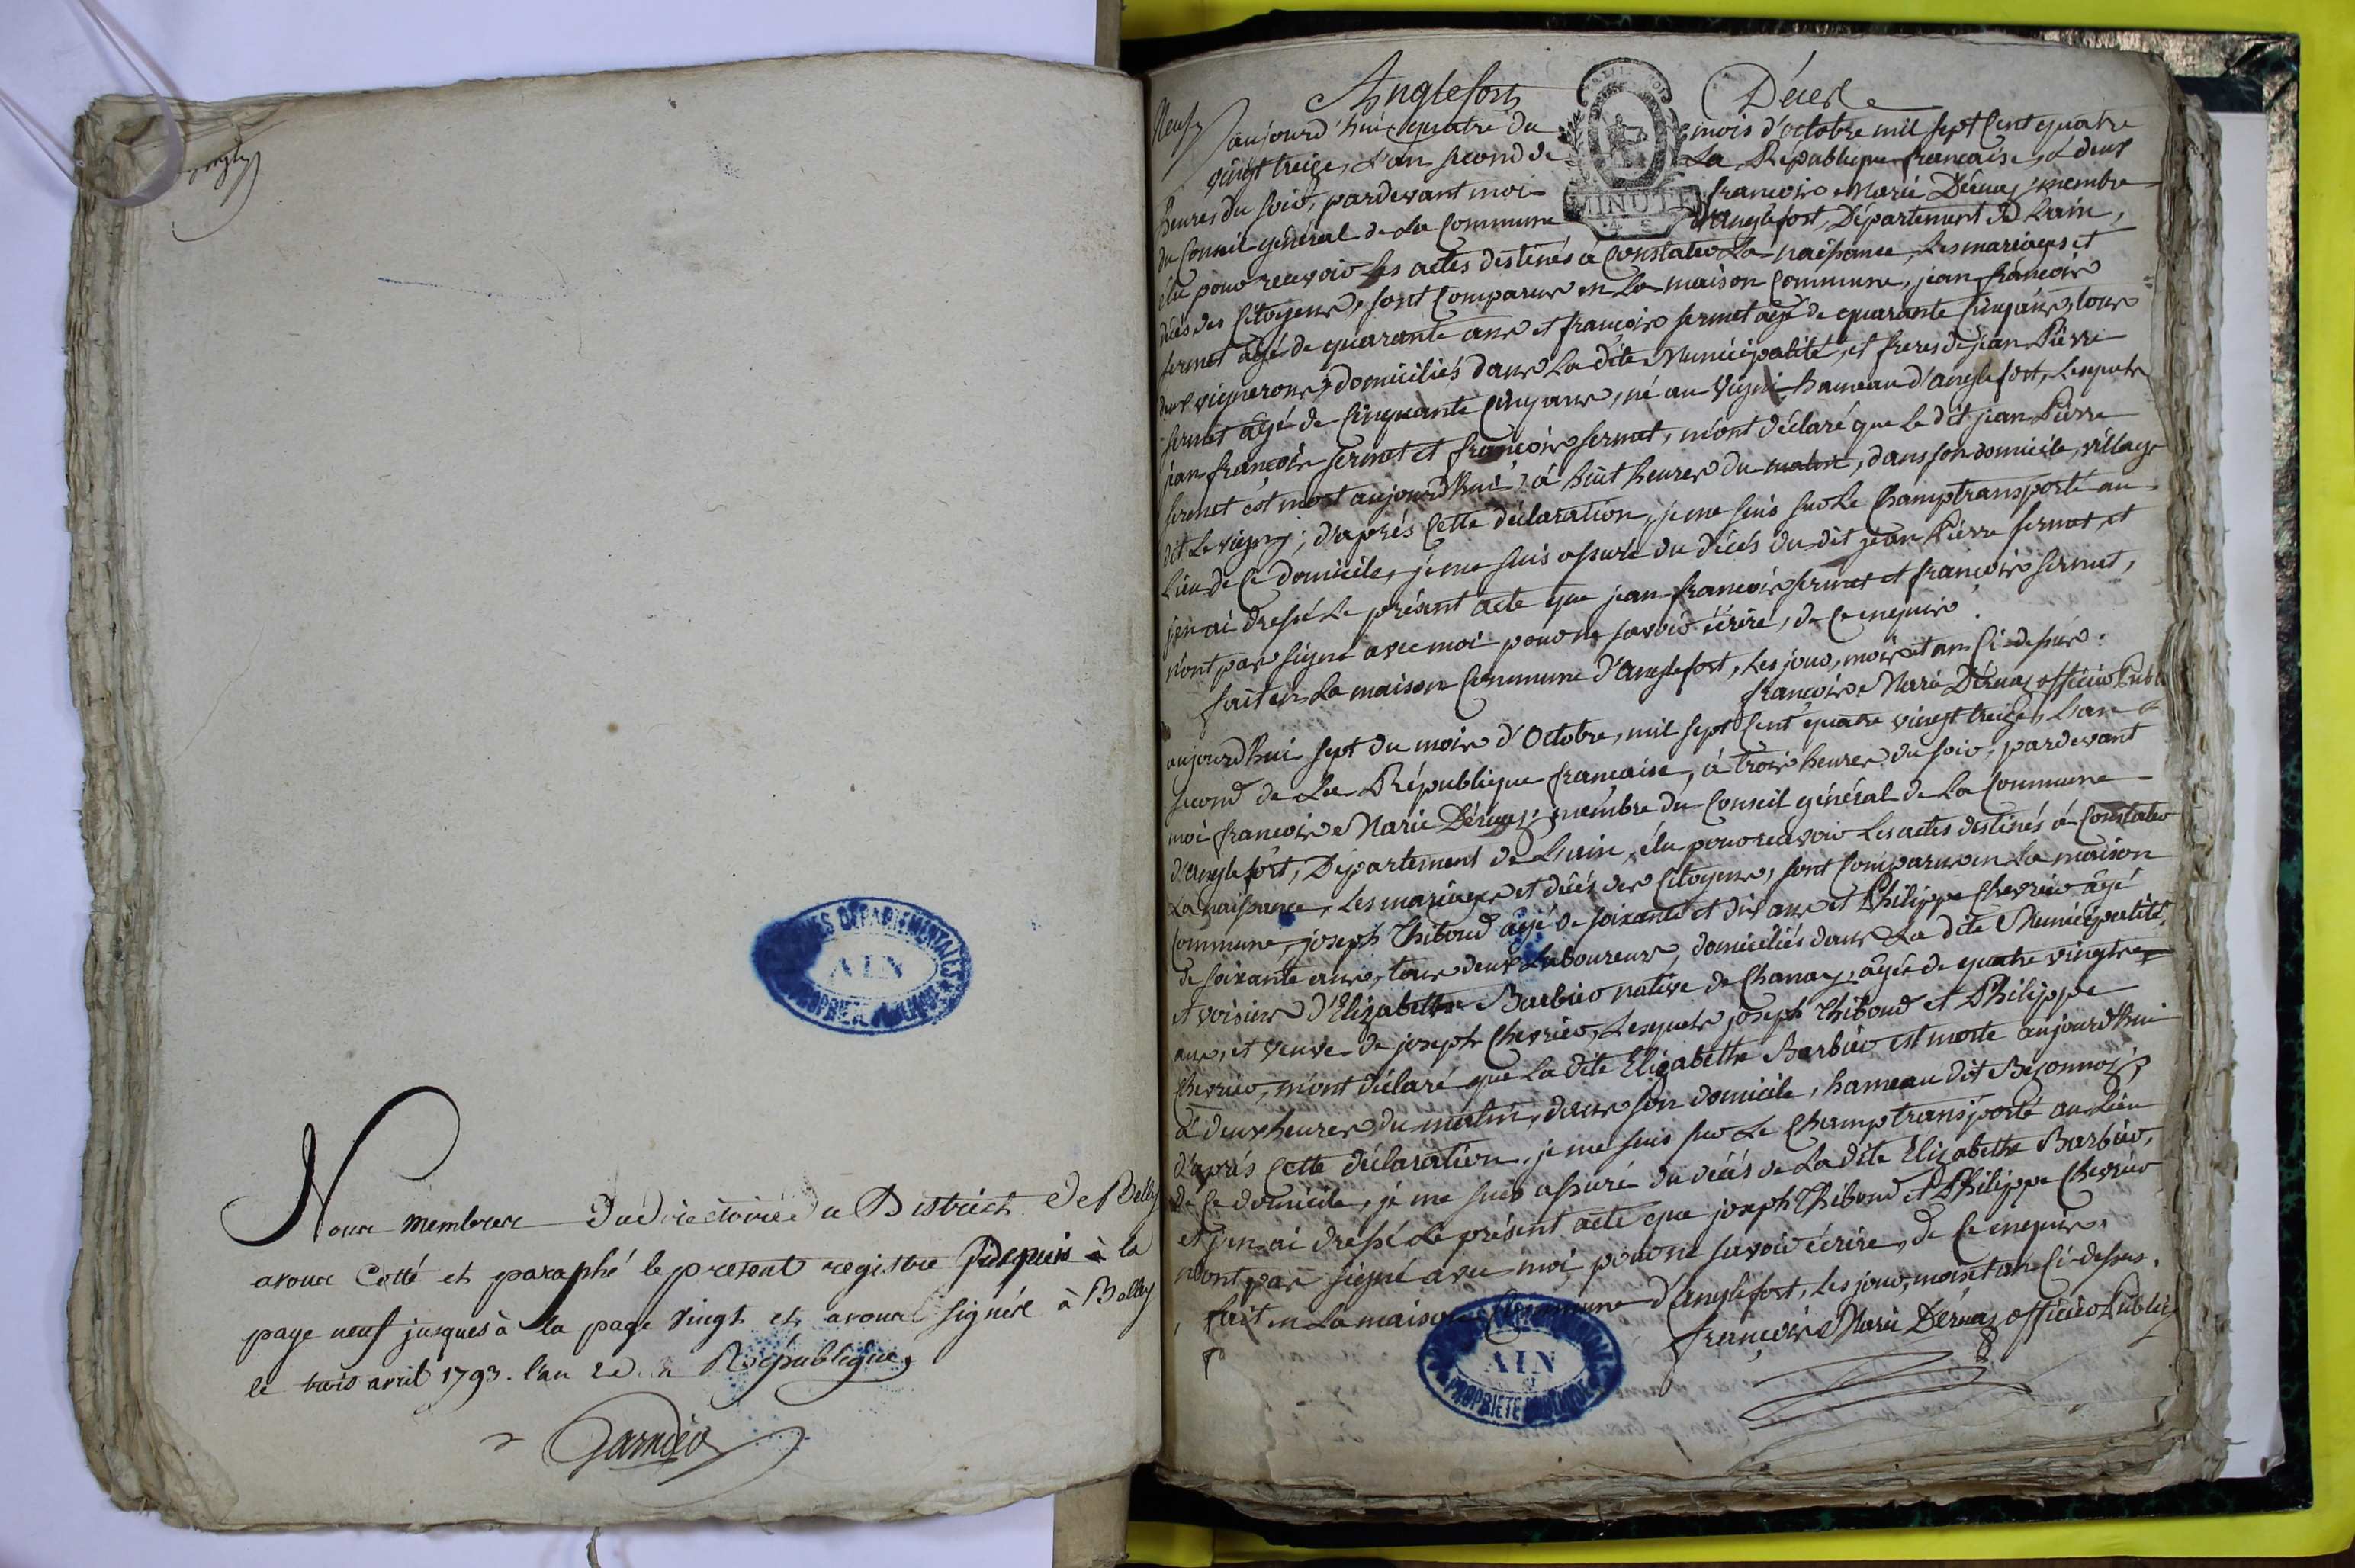 vingt
Nous membres du directoire du District de Belley
avons Cotté et paraphé le present registre depuis à la
page neuf jusques à la page vingt et avons signé à Belley
le trois avril 1793. l'an 2e de la République
Garnier
ARCHIVES DÉPARTEMENTALES
AIN
PROPRIÉTÉ PUBLIQUE
Neuf
Anglefort Décès
MINUTE
aujourd'hui quatre du mois d'octobre mil sept Cent quatre
vingt treize, L'an second de La République française, à deux
heures du soir, pardevant moi françois Marie Dérnaz, membre
du Conseil général de La Commune d'Anglefort, Département de L'ain,
élu pour recevoir les actes destinés à Constater La naissance, Les mariages et
décès des Citoyens, sont Comparus en La maison Commune, jean françois
sermet âgé de quarante ans et françois sermet âgé de quarante Cinq ans, tous
deux vignerons, domiciliés dans La dite Municipalité, et freres de jean Pierre
sermet âgé de Cinquante Cinq ans, né au Vigni hameau d'anglefort, Lesquels
jean françois sermet et françois sermet, m'ont déclaré que Le dit jean Pierre
sermet est mort aujourd'hui, à huit heures du matin, dans son domicile, village
dit Le vigny; d'après Cette déclaration, je me suis sur Le Champ transporté au
Lieu de Ce domicile, je me suis assuré du décès du dit jean Pierre sermet, et
j'en ai dressé Le présent acte que jean françois sermet et françois sermet,
n'ont pas signé avec moi pour ne savoir écrire, de Ce enquis.
fait en La maison Commune d'anglefort, Les jour, mois et an Ci-dessus.
françois Marie Dérnaz officier Publi
aujourd'hui sept du mois d'Octobre, mil sept Cent quatre vingt treize, L'an
second de La République française, à trois heures du soir, pardevant
moi françois Marie Dérnaz, membre du Conseil général de La Commune
d'anglefort, Département de L'ain, élu pour recevoir Les actes destinés à Constater
La naissance, Les mariages et décès des Citoyens, sont Comparus en La maison
Commune, joseph Thiboud âgé de soixante et dix ans et Philippe Chevrier âgé
de soixante ans, tous deux Laboureurs, domiciliés dans La dite Municipalité,
et voisins d'Elizabeth Barbier native de Chanay, âgée de quatre vingts
ans, et veuve de joseph Chevrier, Lesquels joseph Thiboud et Philippe
Chevrier, m'ont déclaré que La dite Elizabeth Barbier est morte aujourd'hui
à deux heures du matin, dans son domicile, hameau dit Bezonnoz;
d'après Cette déclaration, je me suis sur Le Champ transporté au Lieu
de Ce domicile, je me suis assuré du décès de La dite Elizabeth Barbier,
et j'en ai dressé Le présent acte que joseph Thiboud et Philippe Chevrier
n'ont pas signé avec moi pour ne savoir écrire, de Ce enquis.
fait en La maison Commune d'anglefort, Les jour, mois et an Ci-dessus.
françois Marie Dérnaz officier Public
AIN
PROPRIÉTÉ PUBLIQUE